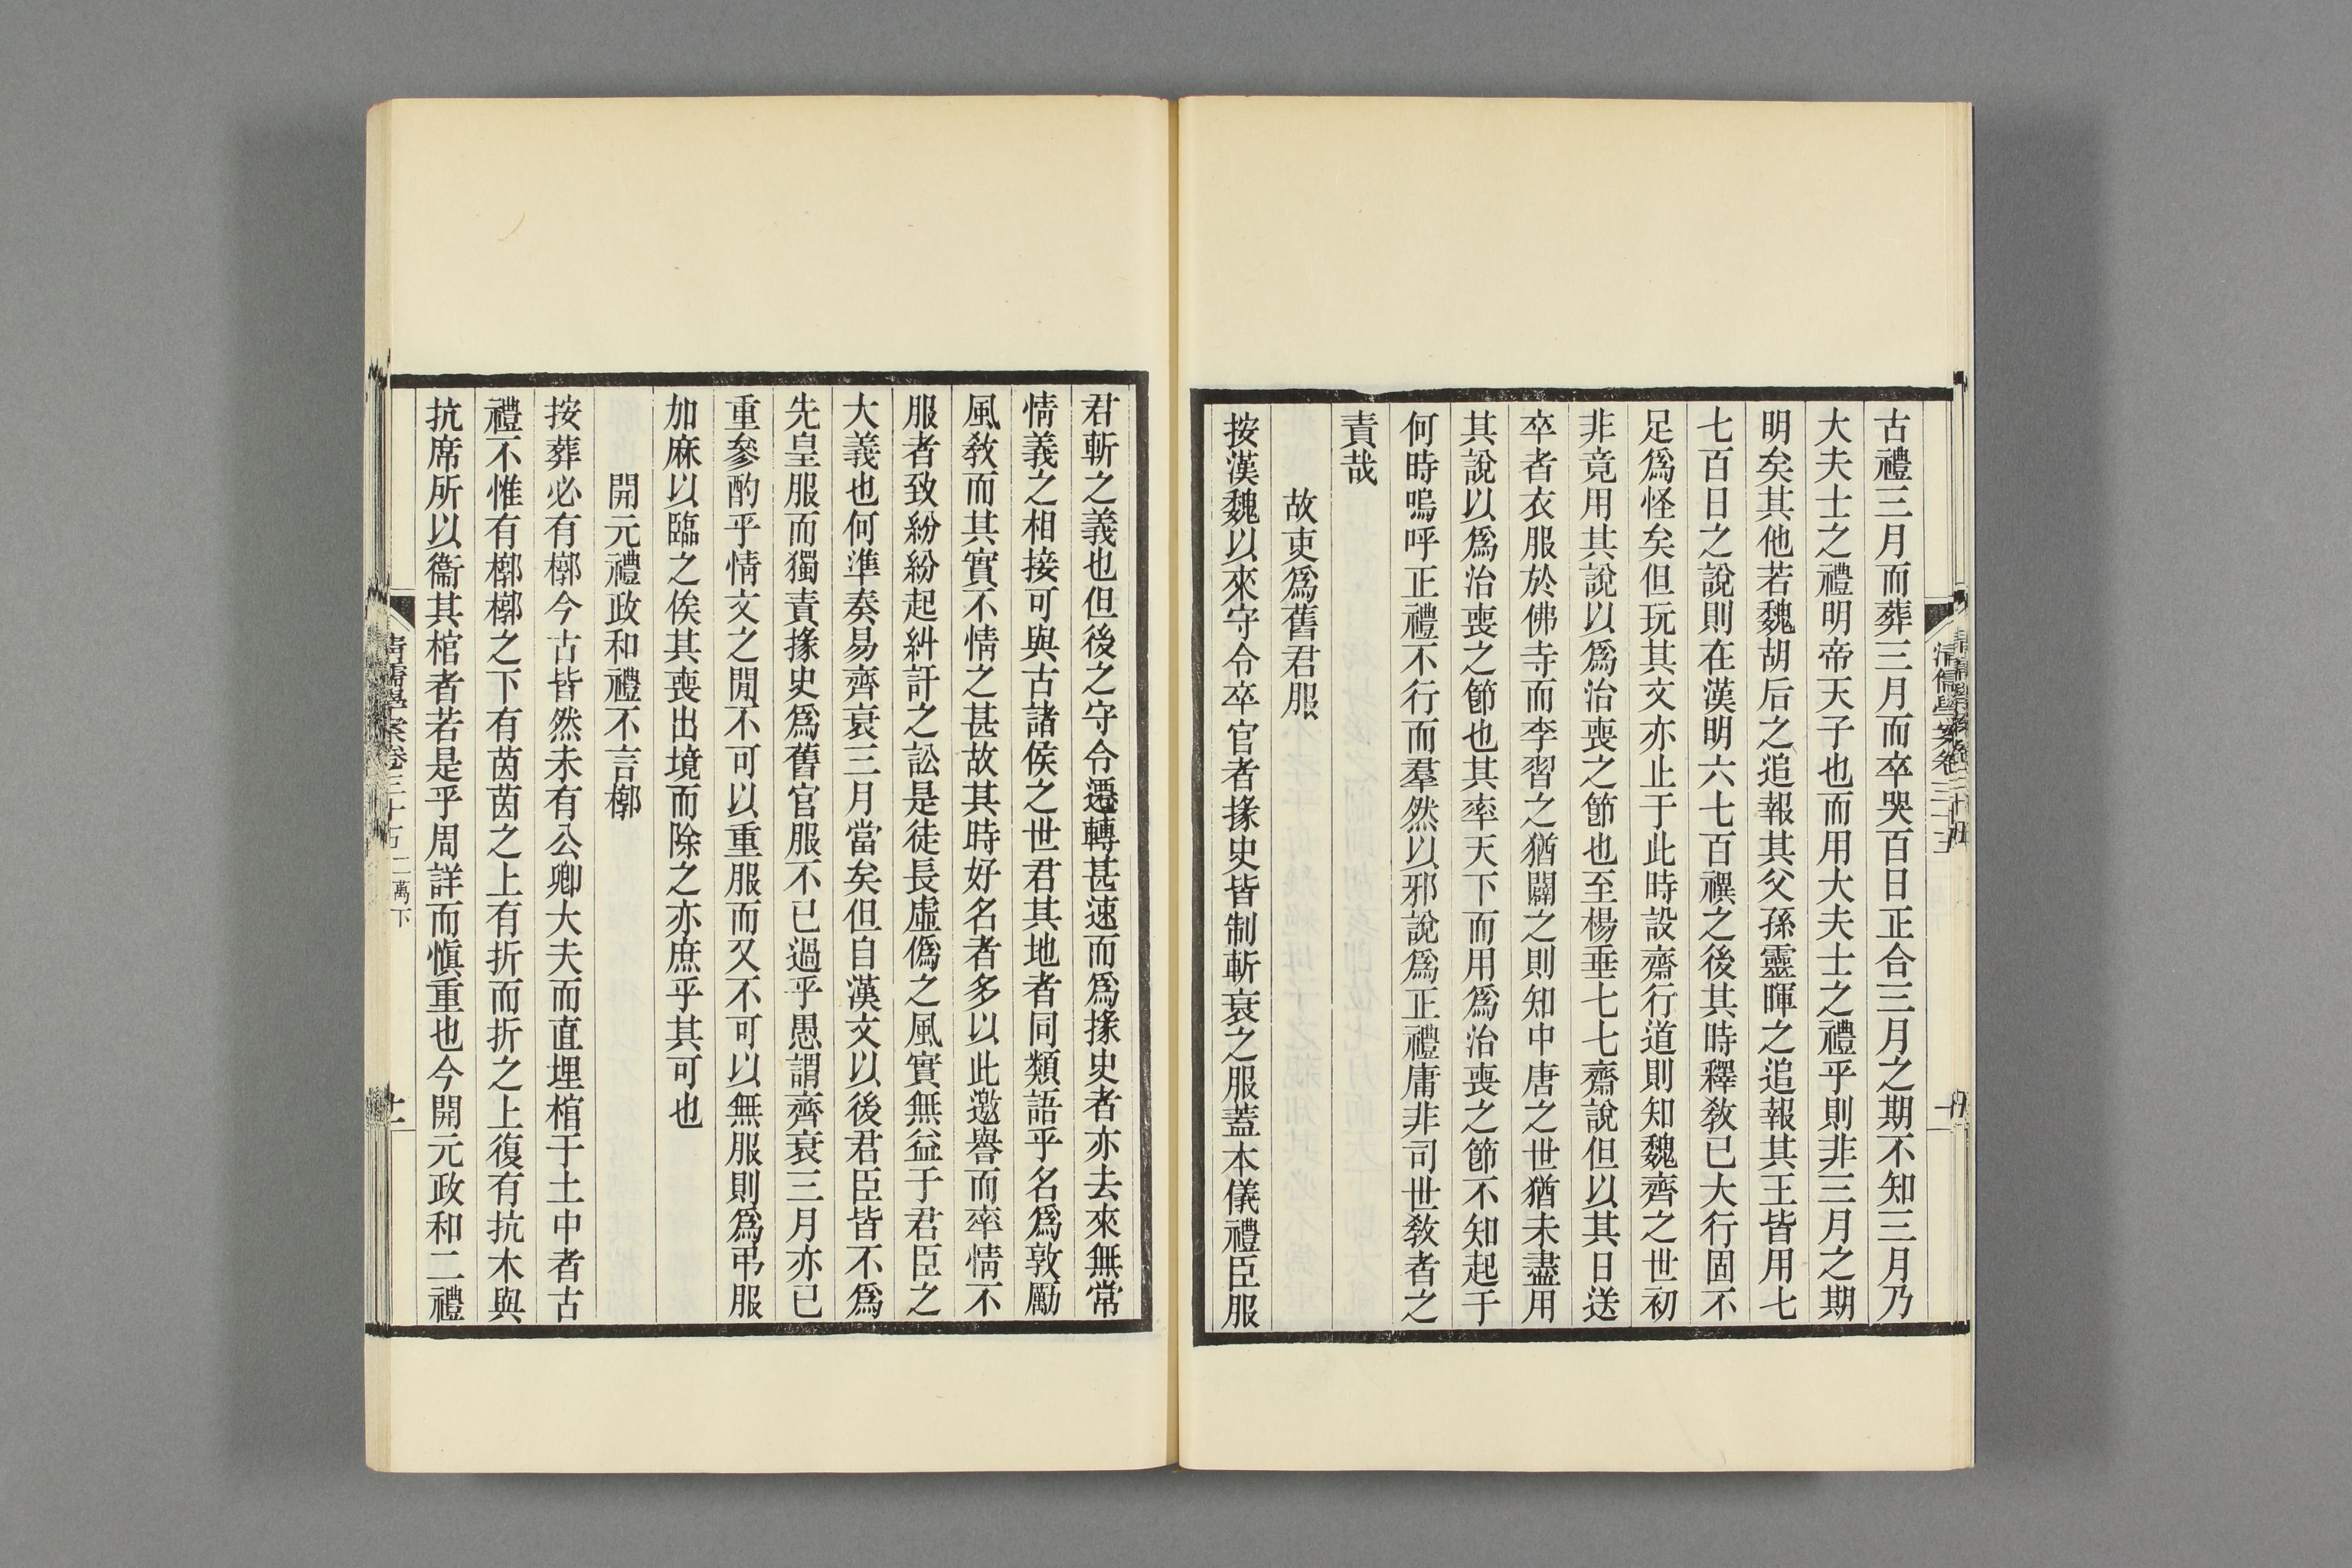 古禮三月而葬三月而卒哭百日正合三月之期不知三月乃
大夫士之禮明帝天子也而用大夫士之禮乎則非三月之期
明矣其他若魏胡后之追報其父孫靈暉之追報其王皆用七
七百日之說則在漢明六七百禩之後其時釋敎已大行固不
足爲怪矣但玩其文亦止于此時設齋行道則知魏齊之世初
非竟用其說以爲治喪之節也至楊垂七七齋說但以其日送
卒者衣服於佛寺而李習之猶闢之則知中唐之世猶未盡用
其說以爲治喪之節也其率天下而用爲治喪之節不知起于
何時嗚呼正禮不行而羣然以邪說爲正禮庸非司世敎者之
責哉
故吏爲舊君服
按漢魏以來守令卒官者掾史皆制斬衰之服蓋本儀禮臣服
君斬之義也但後之守令遷轉甚速而爲掾史者亦去來無常
情義之相接可與古諸侯之世君其地者同類語乎名爲敦勵
風敎而其實不情之甚故其時好名者多以此邀譽而率情不
服者致紛紛起糾訐之訟是徒長虛僞之風實無益于君臣之
大義也何準奏易齊衰三月當矣但自漢文以後君臣皆不爲
先皇服而獨責掾史爲舊官服不已過乎愚謂齊衰三月亦已
重參酌乎情文之閒不可以重服而又不可以無服則爲弔服
加麻以臨之俟其喪出境而除之亦庶乎其可也
開元禮政和禮不言槨
按葬必有槨今古皆然未有公卿大夫而直埋棺于土中者古
禮不惟有槨槨之下有茵茵之上有折而折之上復有抗木與
抗席所以衞其棺者若是乎周詳而愼重也今開元政和二禮
清儒學案卷三十五 二萬下
十一